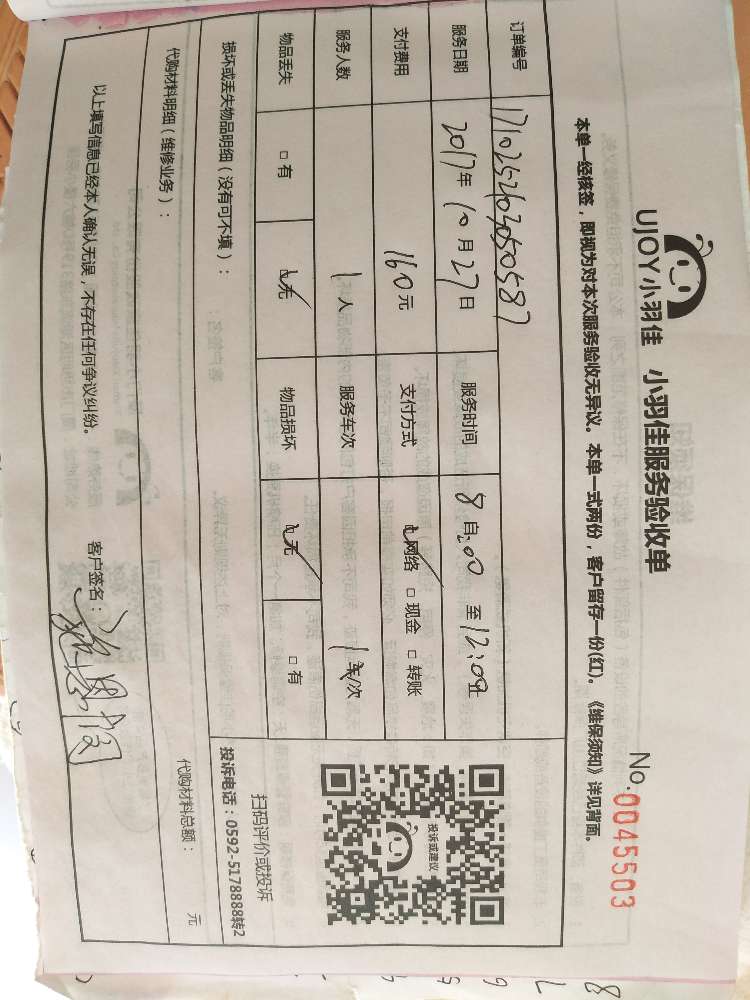 UJOY小羽佳 小羽佳服务验收单
No.0045503
本单一经核签，即视为对本次服务验收无异议。本单一式两份，客户留存一份(红)。《维保须知》详见背面。
订单编号 1710252103050587
服务日期 2017年10月27日 服务时间 8自:00 至12:00止
支付费用 160元 支付方式 ☑网络 □现金 □转账
服务人数 1人 服务车次 1车/次
物品丢失 □有 ☑无 物品损坏 ☑无 □有
投诉或建议
扫码评价或投诉
投诉电话：0592-5178888转2
损坏或丢失物品明细（没有可不填）：
代购材料明细（维修业务）： 代购材料总额： 元
以上填写信息已经本人确认无误，不存在任何争议纠纷。 客户签名：